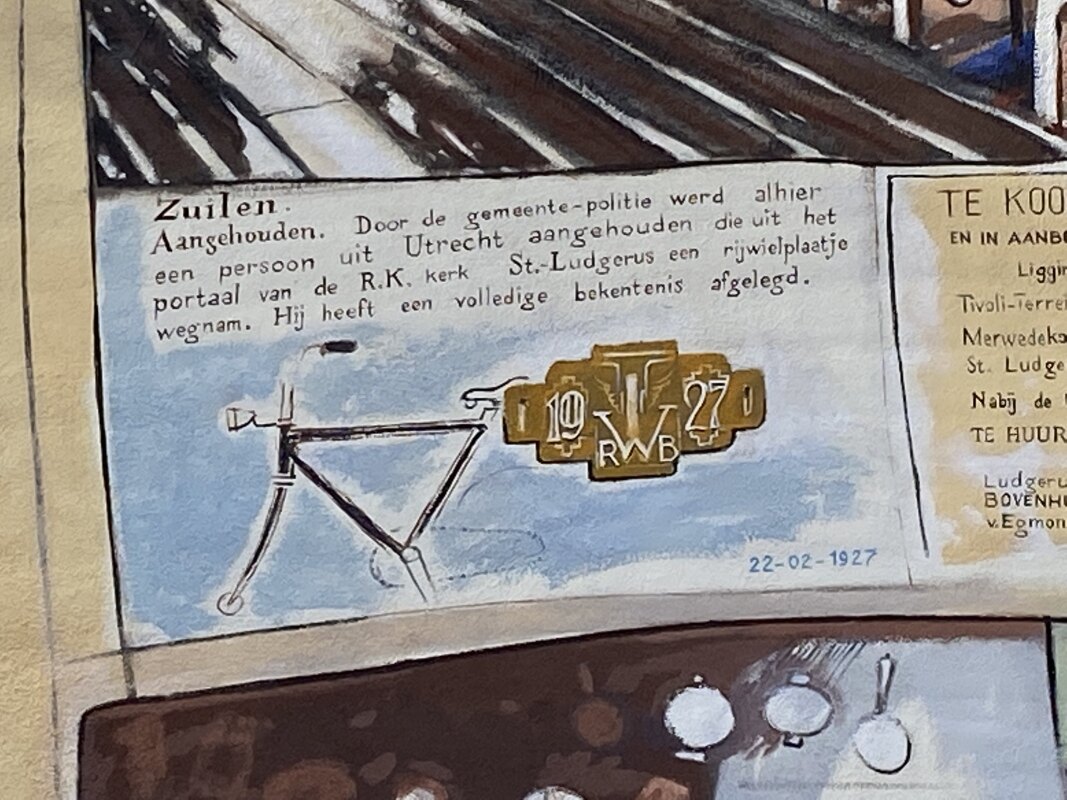 Zuilen.
Aangehouden. Door de gemeente-politie werd alhier
een persoon uit Utrecht aangehouden die uit het
portaal van de R.K. kerk St.-Ludgerus een rijwielplaatje
wegnam. Hij heeft een volledige bekentenis afgelegd.
19 27
RWB
22-02-1927
TE KOO
EN IN AANB
Liggin
Tivoli-Terrei
Merwedeka
St. Ludge
Nabij de
TE HUUR
Ludgeru
BOVENHU
v.Egmon